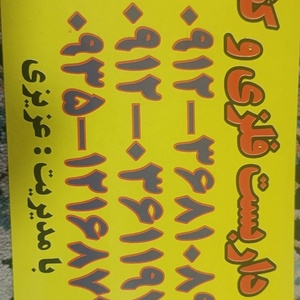 داربست فلزی و
۰۹۱۲–۳۶۸۱۰۸
۰۹۱۲–۰۳۶۱۱۹
۰۹۳۵–۱۲۱۶۸۷
با مدیریت : عزیزی